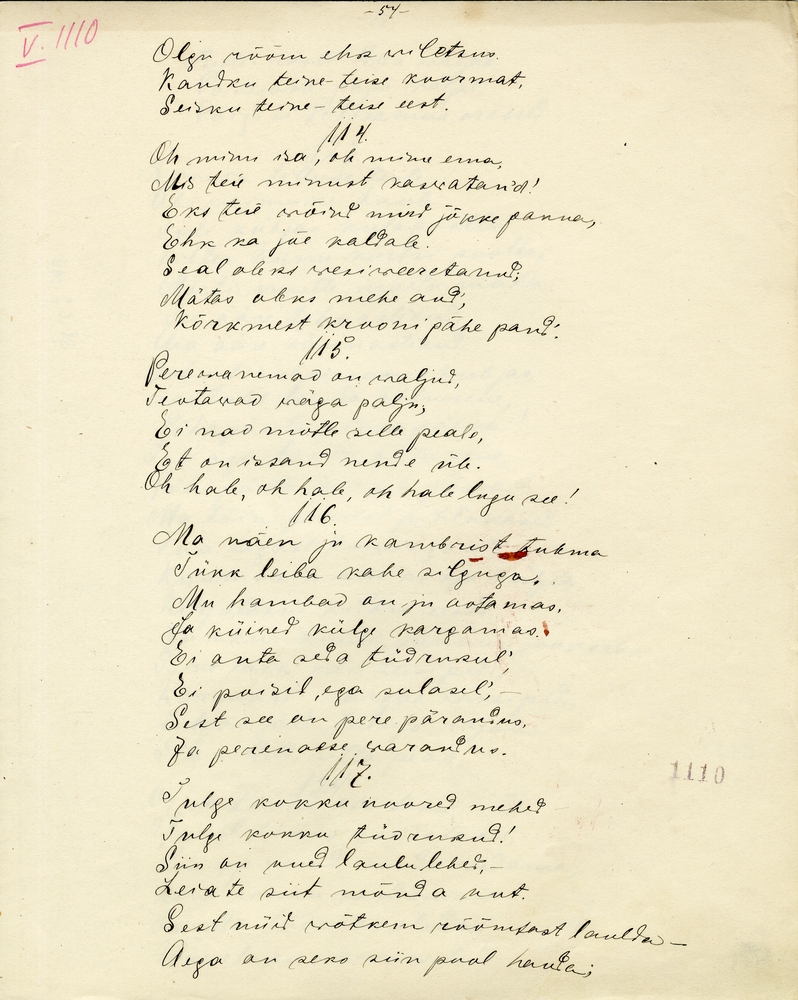 -54-
V. 1110
Olgu rõõm ehk wiletsus.
Kandku teine-teise koormat,
Seisku teine-teise eest.
114.
Oh minu isa, oh minu ema,
Mis teie minust kaswatand!
Eks teie wõind mind jõkke panna,
Ehk ka jõe kaldale.
Seal oleks wesi weeretanud,
Mätas oleks mehe and',
Kõrkmest krooni pähe pand'.
115.
Perewanemad on waljud,
Teotawad wäga palju,
Ei nad mõtle selle peale,
Et on issand nende üle.
Oh hale, oh hale, oh hale lugu see!
116.
Ma näen ju kambrist tuhma
Tükk leiba kahe silguga.
Mu hambad on ju ootamas,
Ja küüned külge kargamas.
Ei anta seda tüdrukul',
Ei poisil, ega sulasel', –
Sest see on pere pärandus,
Ja perenaese warandus.
117.
Tulge kokku noored mehed
Tulge kokku tüdrukud!
Siin on uued laulu lehed, –
Leiate siit mõnda uut.
Sest nüid wõtkem rõõmsast laulda –
Aega on seks siin pool hauda;
1110